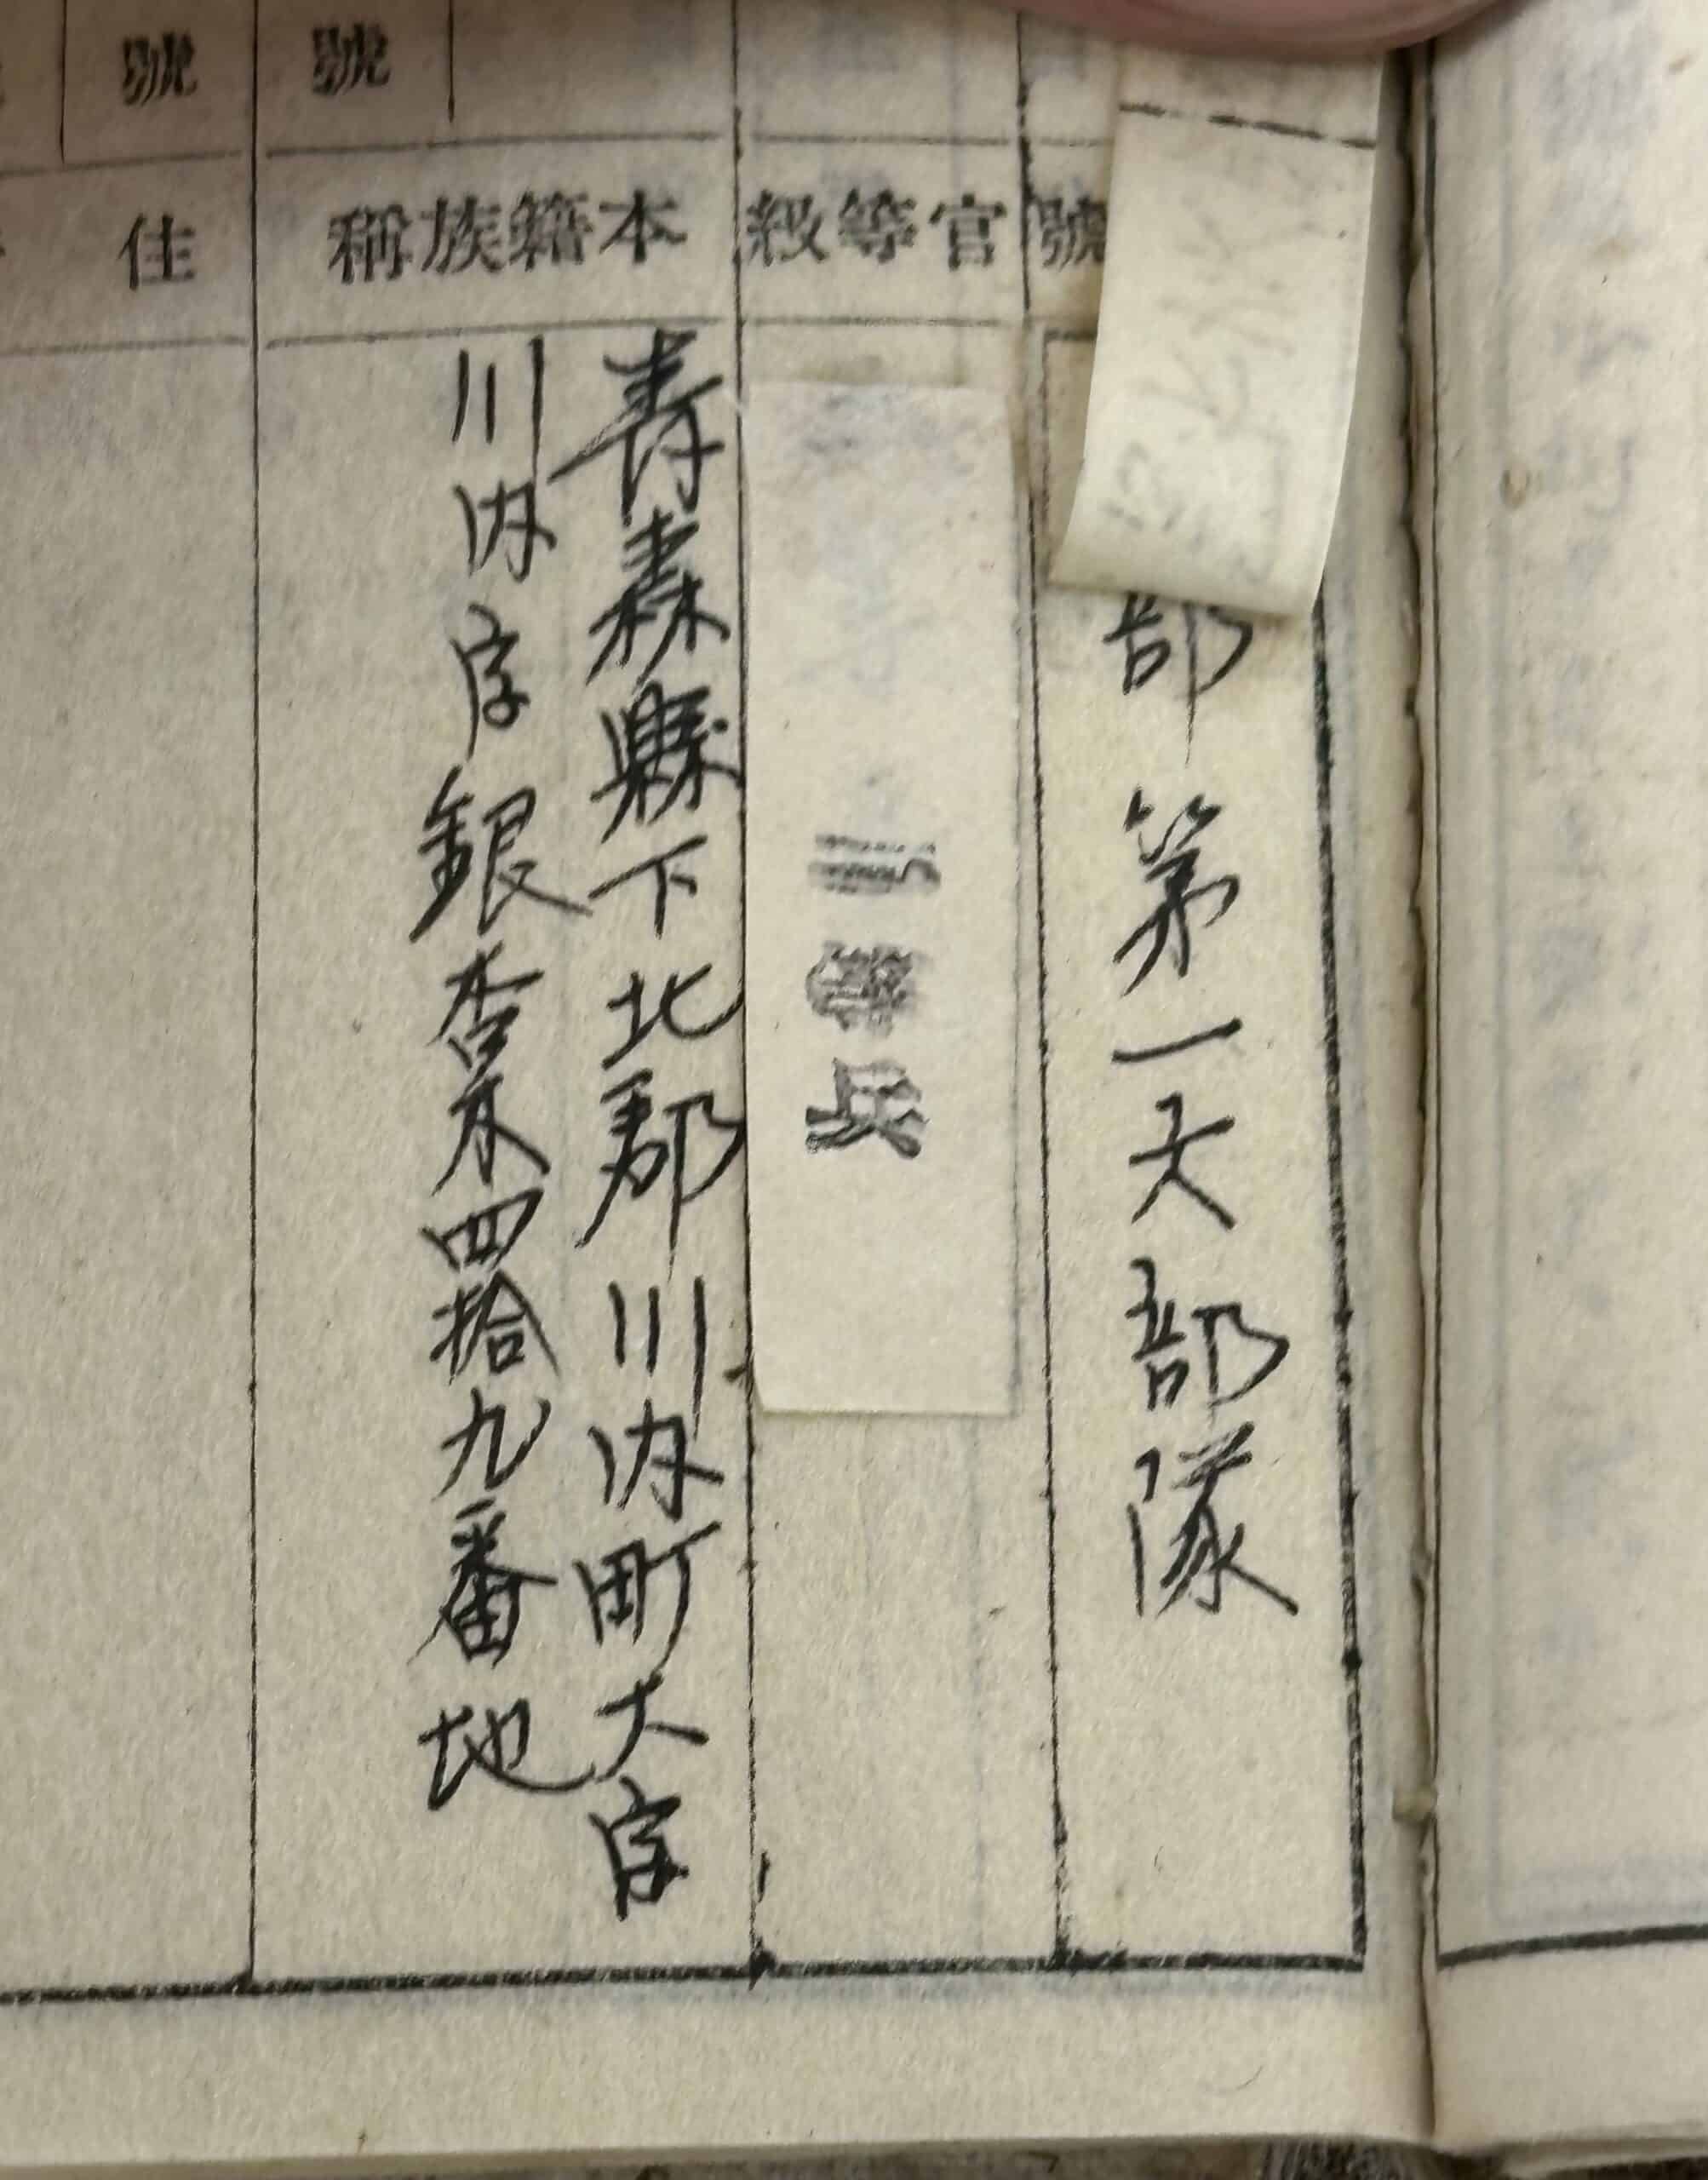 號
號
號
部第一大部隊
官等級
等兵
本籍族稱
青森縣下北郡川内町大字
川内字銀杏木四拾九番地
住